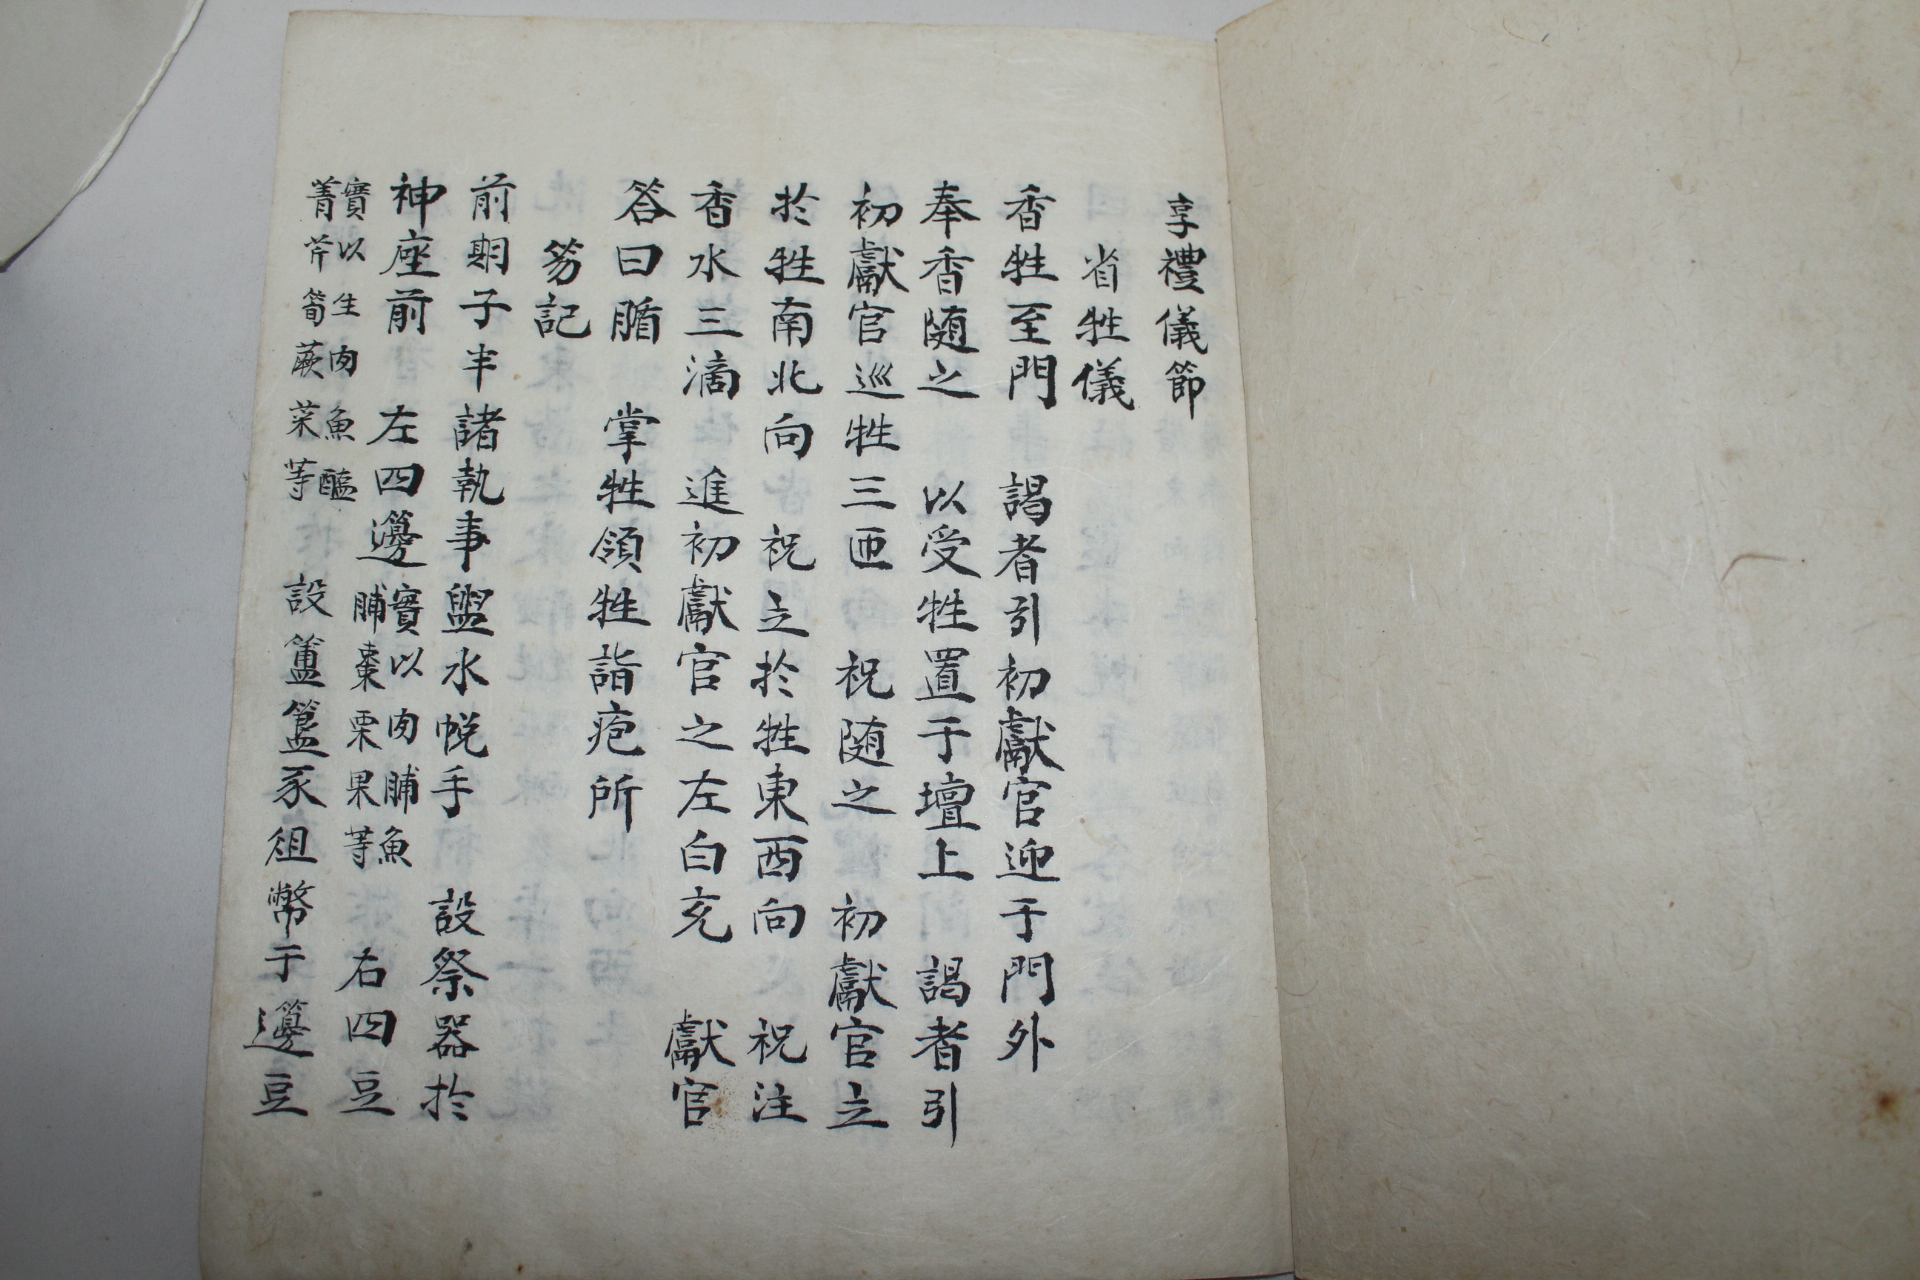 享禮儀節
省牲儀
香牲至門 謁者引初獻官迎于門外
奉香随之 以受牲置于壇上 謁者引
初獻官巡牲三匝 祝随之 初獻官立
扵牲南北向 祝立扵牲東西向 祝注
香水三滴 進初獻官之左白充 獻官
答曰腯 掌牲領牲詣庖所
笏記
前期子半諸執事盥水帨手 設祭器扵
神座前 左四籩 實以肉脯魚
脯棗栗果等 右四豆
實以生肉魚醢
菁芹筍蕨菜等 設簠簋豕俎幣于籩豆